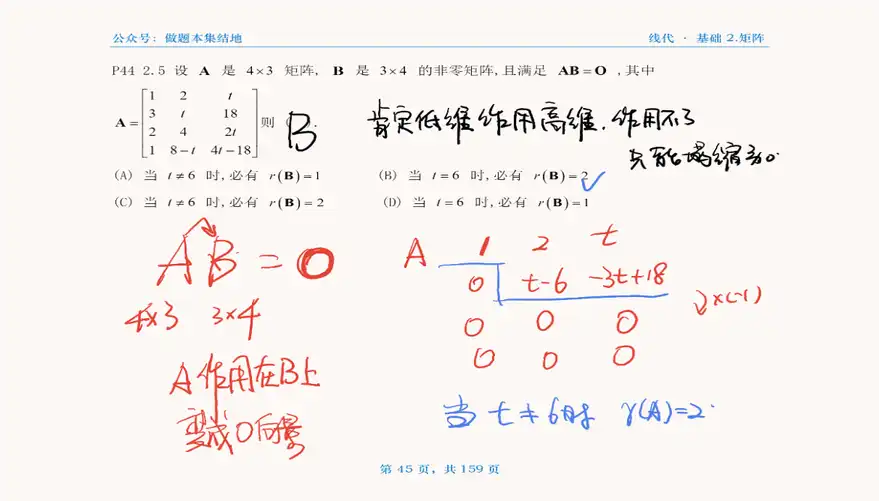 公众号：做题本集结地
线代 · 基础 2.矩阵
P44 2.5 设 A 是 4×3 矩阵, B 是 3×4 的非零矩阵,且满足 AB=O ,其中
A=[1 2 t
3 t 18
2 4 2t
1 8-t 4t-18] 则 ( ).
B
肯定低维作用高维.作用不了
只能塌缩为0.
(A) 当 t≠6 时,必有 r(B)=1
(B) 当 t=6 时,必有 r(B)=2
(C) 当 t≠6 时,必有 r(B)=2
(D) 当 t=6 时,必有 r(B)=1
AB=0
4×3 3×4
A作用在B上
变成0向量
A 1 2 t
0 t-6 -3t+18
×(-1)
0 0 0
0 0 0
当 t≠6时 r(A)=2.
第 45 页, 共 159 页